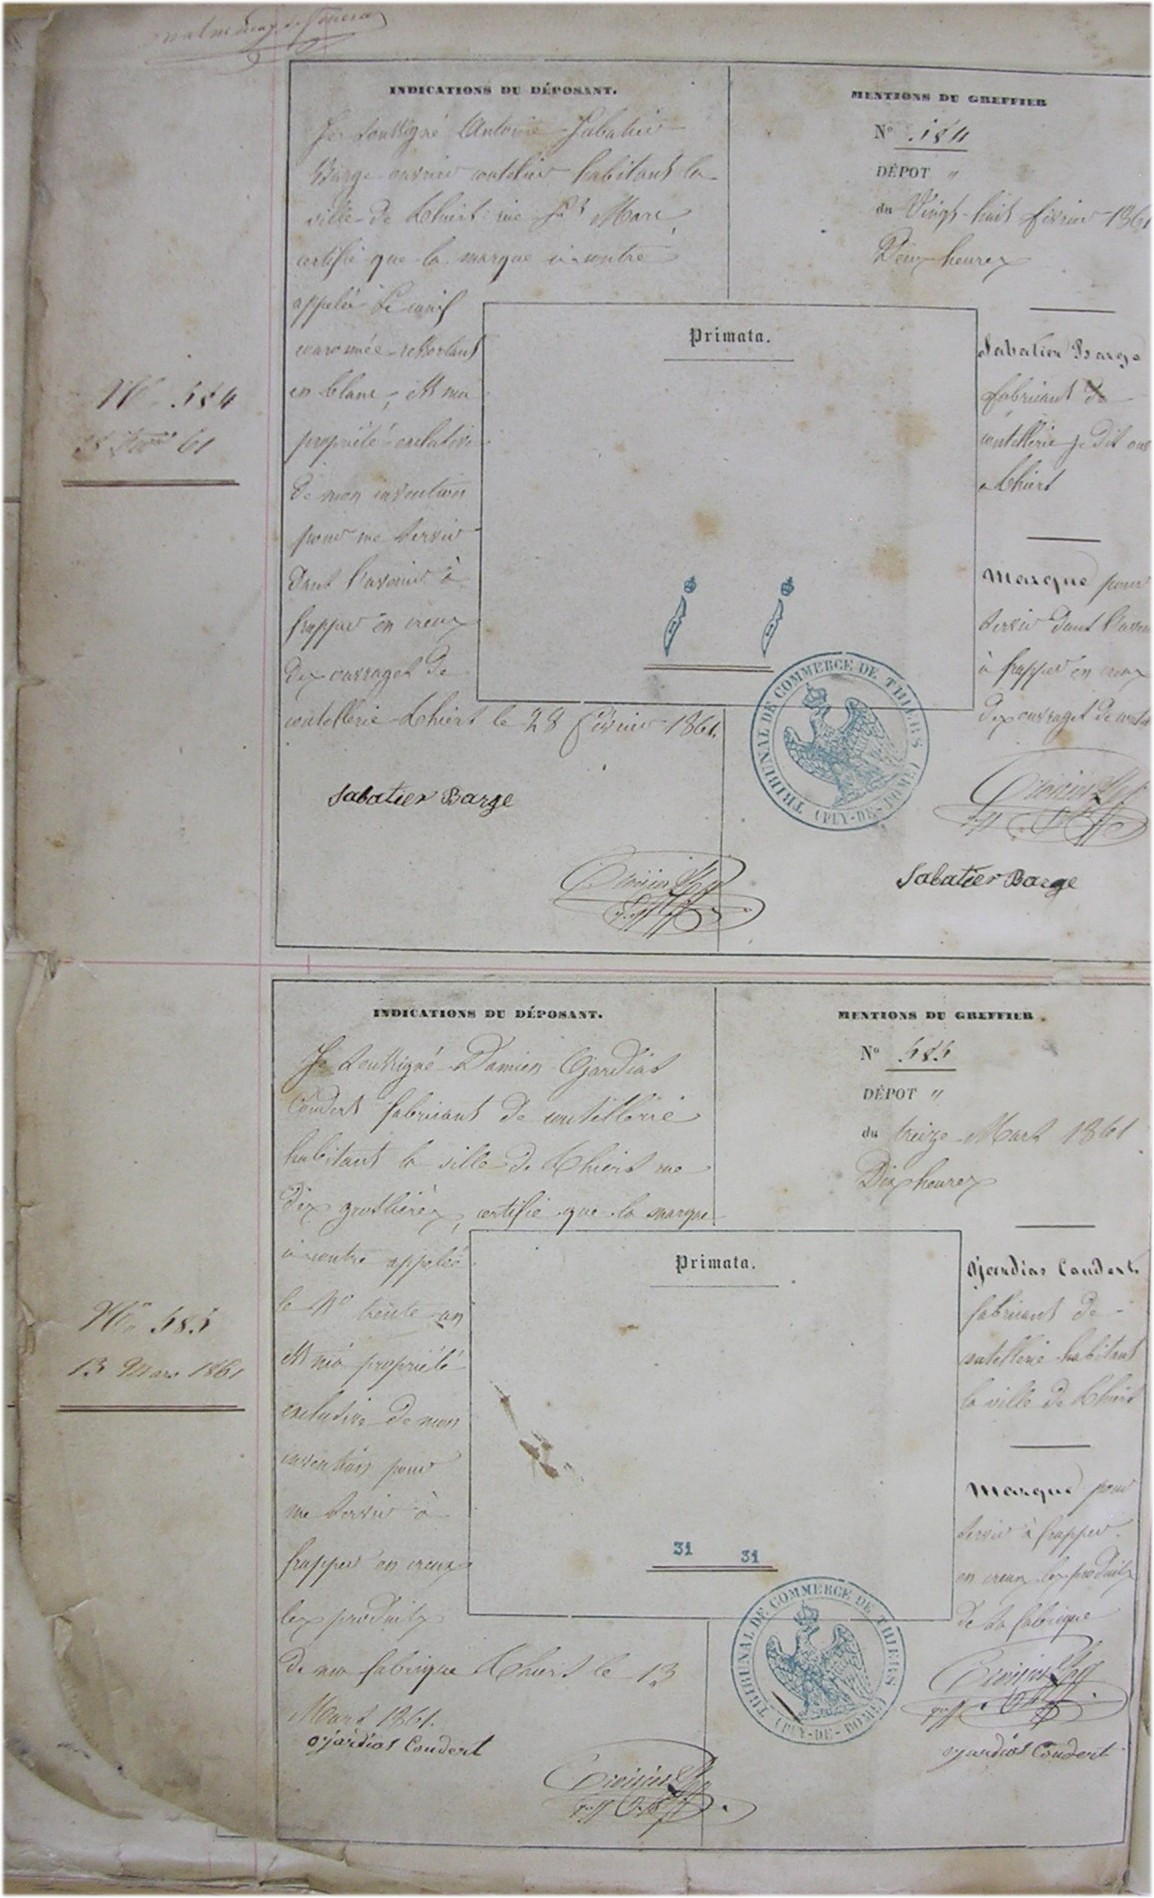 INDICATIONS DU DÉPOSANT.
Je soussigné Antoine Sabatier
Barge ouvrier coutelier habitant la
ville de Thiers rue St Marc
certifie que la marque ci contre
appelée Le canif
couronnée ressortant
en blanc, est ma
propriété exclusive
de mon invention
pour me servir
dans l'avenir à
frapper en creux
des ouvrages de
coutellerie Thiers le 28 février 1861.
Sabatier Barge
MENTIONS DU GREFFIER
N° 584
DÉPOT "
du Vingt-huit février 1861
Deux heures
N° 584
28 61
Primata.
Sabatier Barge
fabricant de
coutellerie je dis
à Thiers
Marque pour
servir dans l'avenir
à frapper en creux
des ouvrages de
TRIBUNAL DE COMMERCE DE THIERS
(PUY-DE-DOME)
Sabatier Barge
INDICATIONS DU DÉPOSANT.
Je soussigné Damien Ojardias
Coudert fabricant de coutellerie
habitant la ville de Thiers rue
des grosliers, certifie que la marque
ci contre appelée
le N° trente un
est ma propriété
exclusive de mon
invention pour
me servir à
frapper en creux
les produits
de ma fabrique Thiers le 13
Mars 1861.
Ojardias Coudert
MENTIONS DU GREFFIER.
N° 585
DÉPOT "
du treize Mars 1861
Dix heures
N° 585
13 Mars 1861
Primata.
31 31
Ojardias Coudert
fabricant de
coutellerie habitant
la ville de Thiers
Marque pour
servir à frapper
en creux les produits
de sa fabrique
TRIBUNAL DE COMMERCE DE THIERS
(PUY-DE-DOME)
Ojardias Coudert